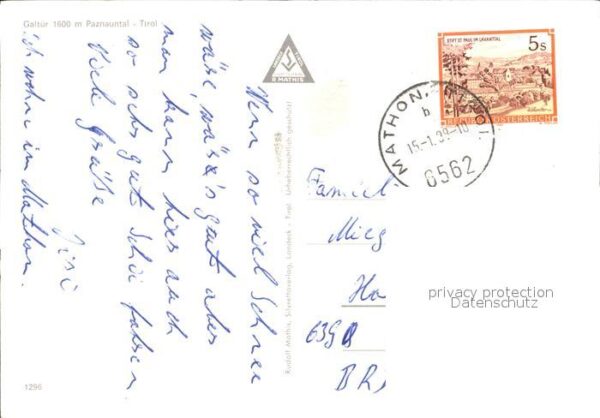 Galtür 1600 m Paznauntal - Tirol
Wenn so viel Schnee
wäre, wäre's gut aber
man kann hier auch
so sehr gut Schi fahren.
Viele Grüße
ich wohne in Mathon.
R MATHIS
Rudolf Mathis, Silvrettaverlag, Landeck - Tirol Urheberrechtlich geschützt!
1296
STIFT ST. PAUL IM LAVANTTAL
5 S
REPUBLIK ÖSTERREICH
MATHON, TIROL
b
15-1.89-10
6562
Familie
Mieg
Ha
BR
privacy protection
Datenschutz